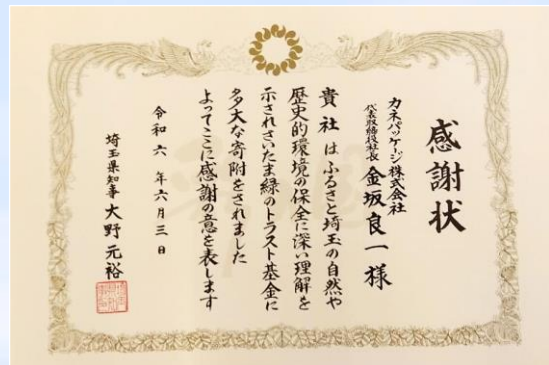 感謝状
カネパッケージ株式会社
代表取締役社長 金坂良一様
貴社はふるさと埼玉の自然や
歴史的環境の保全に深い理解を
示されさいたま緑のトラスト基金に
多大な寄附をされました
よってここに感謝の意を表します
令和六年六月三日
埼玉県知事 大野元裕